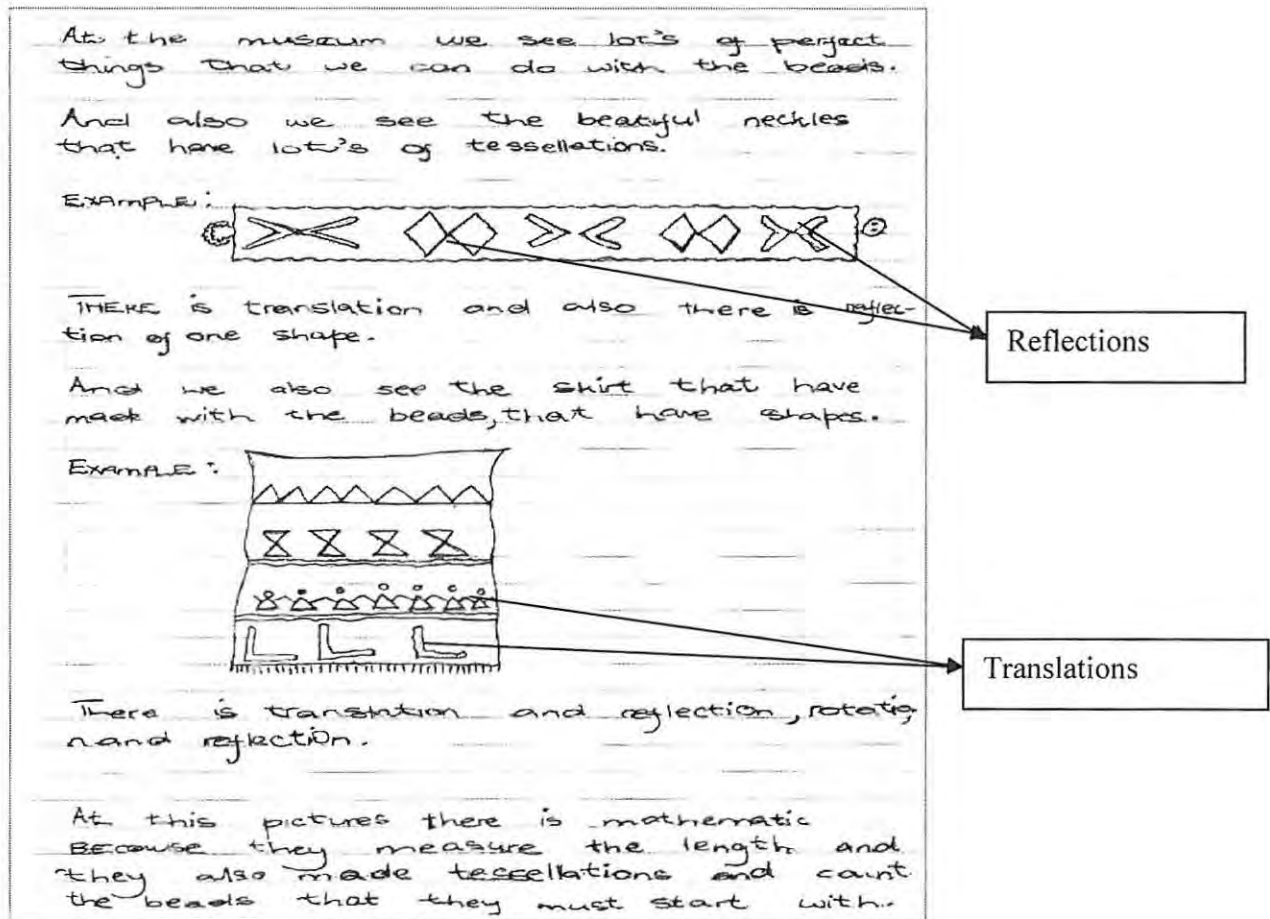 At the museum we see lot's of perfect
things that we can do with the beads.
And also we see the beatiful neckles
that have lot's of tessellations.
EXAMPLE:
THERE is translation and also there is reflec-
tion of one shape.
Reflections
And we also see the skirt that have
made with the beads, that have shapes.
EXAMPLE:
Translations
There is translation and reflection, rotatio
n and reflection.
At this pictures there is mathematic
BECAUSE they measure the length and
they also made tessellations and count
the beads that they must start with.